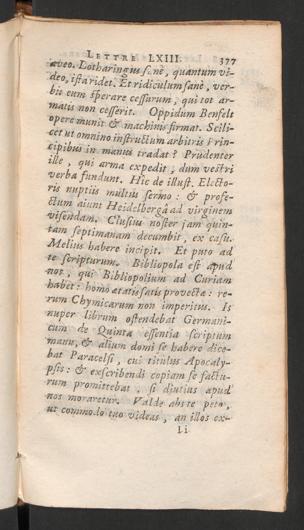 LETTRE LXIII. 377
aveo. Lotharingus sanè, quantum vi-
deo, ista ridet. Et ridiculum sanè, ver-
bis eum sperare cessurum, qui tot ar-
matis non cesserit. Oppidum Benfelt
opere munit & machinis firmat. Scili-
cet ut omnino instructum arbitris Prin-
cipibus in manus tradat? Prudenter
ille, qui arma expedit, dum vestri
verba fundunt. Hic de illust. Electo-
ris nuptiis multus sermo: & profe-
ctum aiunt Heidelbergâ ad virginem
visendam. Clusius noster jam quin-
tam septimanam decumbit, ex casu.
Melius habere incipit. Et puto ad
te scripturum. Bibliopola est apud
nos, qui Bibliopolium ad Curiam
habet: homo ætatis satis provectæ: re-
rum Chymicarum non imperitus. Is
nuper librum ostendebat Germani-
cum de Quinta essentia scriptum
manu, & alium domi se habere dice-
bat Paracelsi, cui titulus Apocaly-
psis: & exscribendi copiam se factu-
rum promittebat, si diutius apud
nos moraretur. Valde abs te peto,
ut commodo tuo videas, an illos ex-
Ii